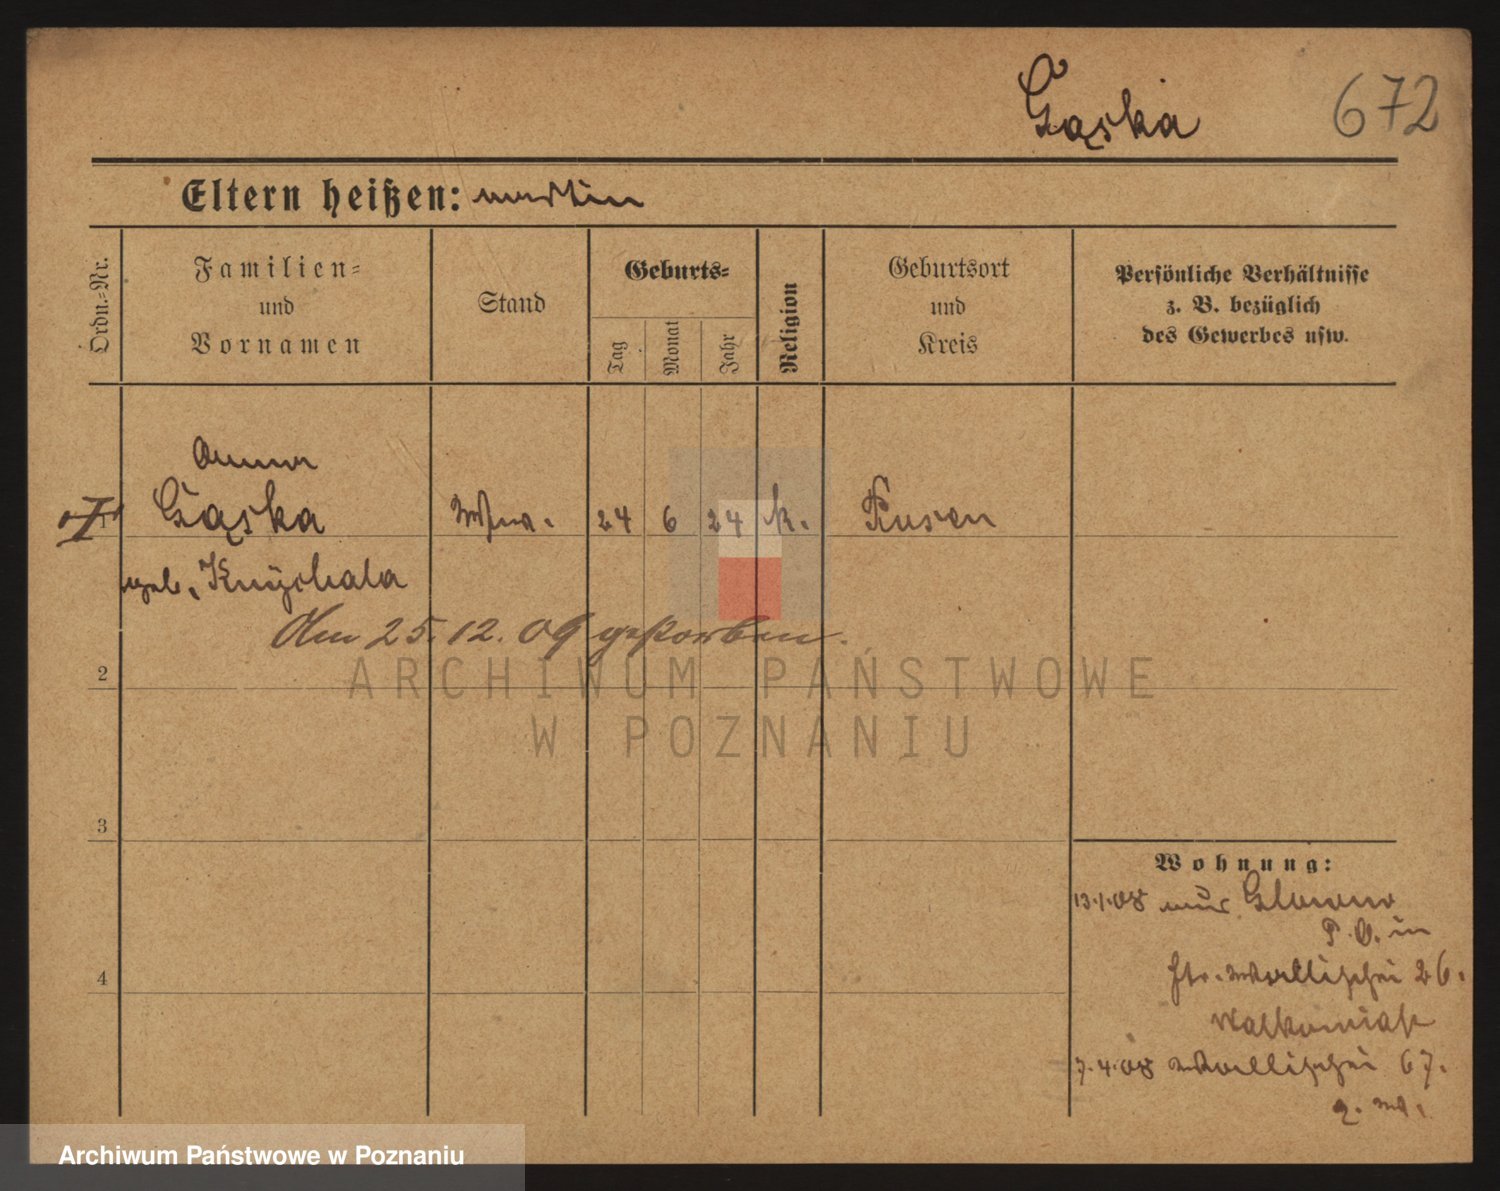 Gąska 672
Eltern heißen: Martin
Ordn.-Nr.
Familien-
und
Vornamen
Stand
Geburts-
Tag
Monat
Jahr
Religion
Geburtsort
und
Kreis
Persönliche Verhältnisse
z. B. bezüglich
des Gewerbes usw.
Anna
1 Gąska Wwe. 24 6 24 k. Kusen
geb.
Am 25.12.09 gestorben.
2
3
4
Wohnung:
13.1.08 aus Glowno
P. O. in
Wallischei 26.
7.4.08 Wallischei 67.
ARCHIWUM PAŃSTWOWE
W POZNANIU
Archiwum Państwowe w Poznaniu